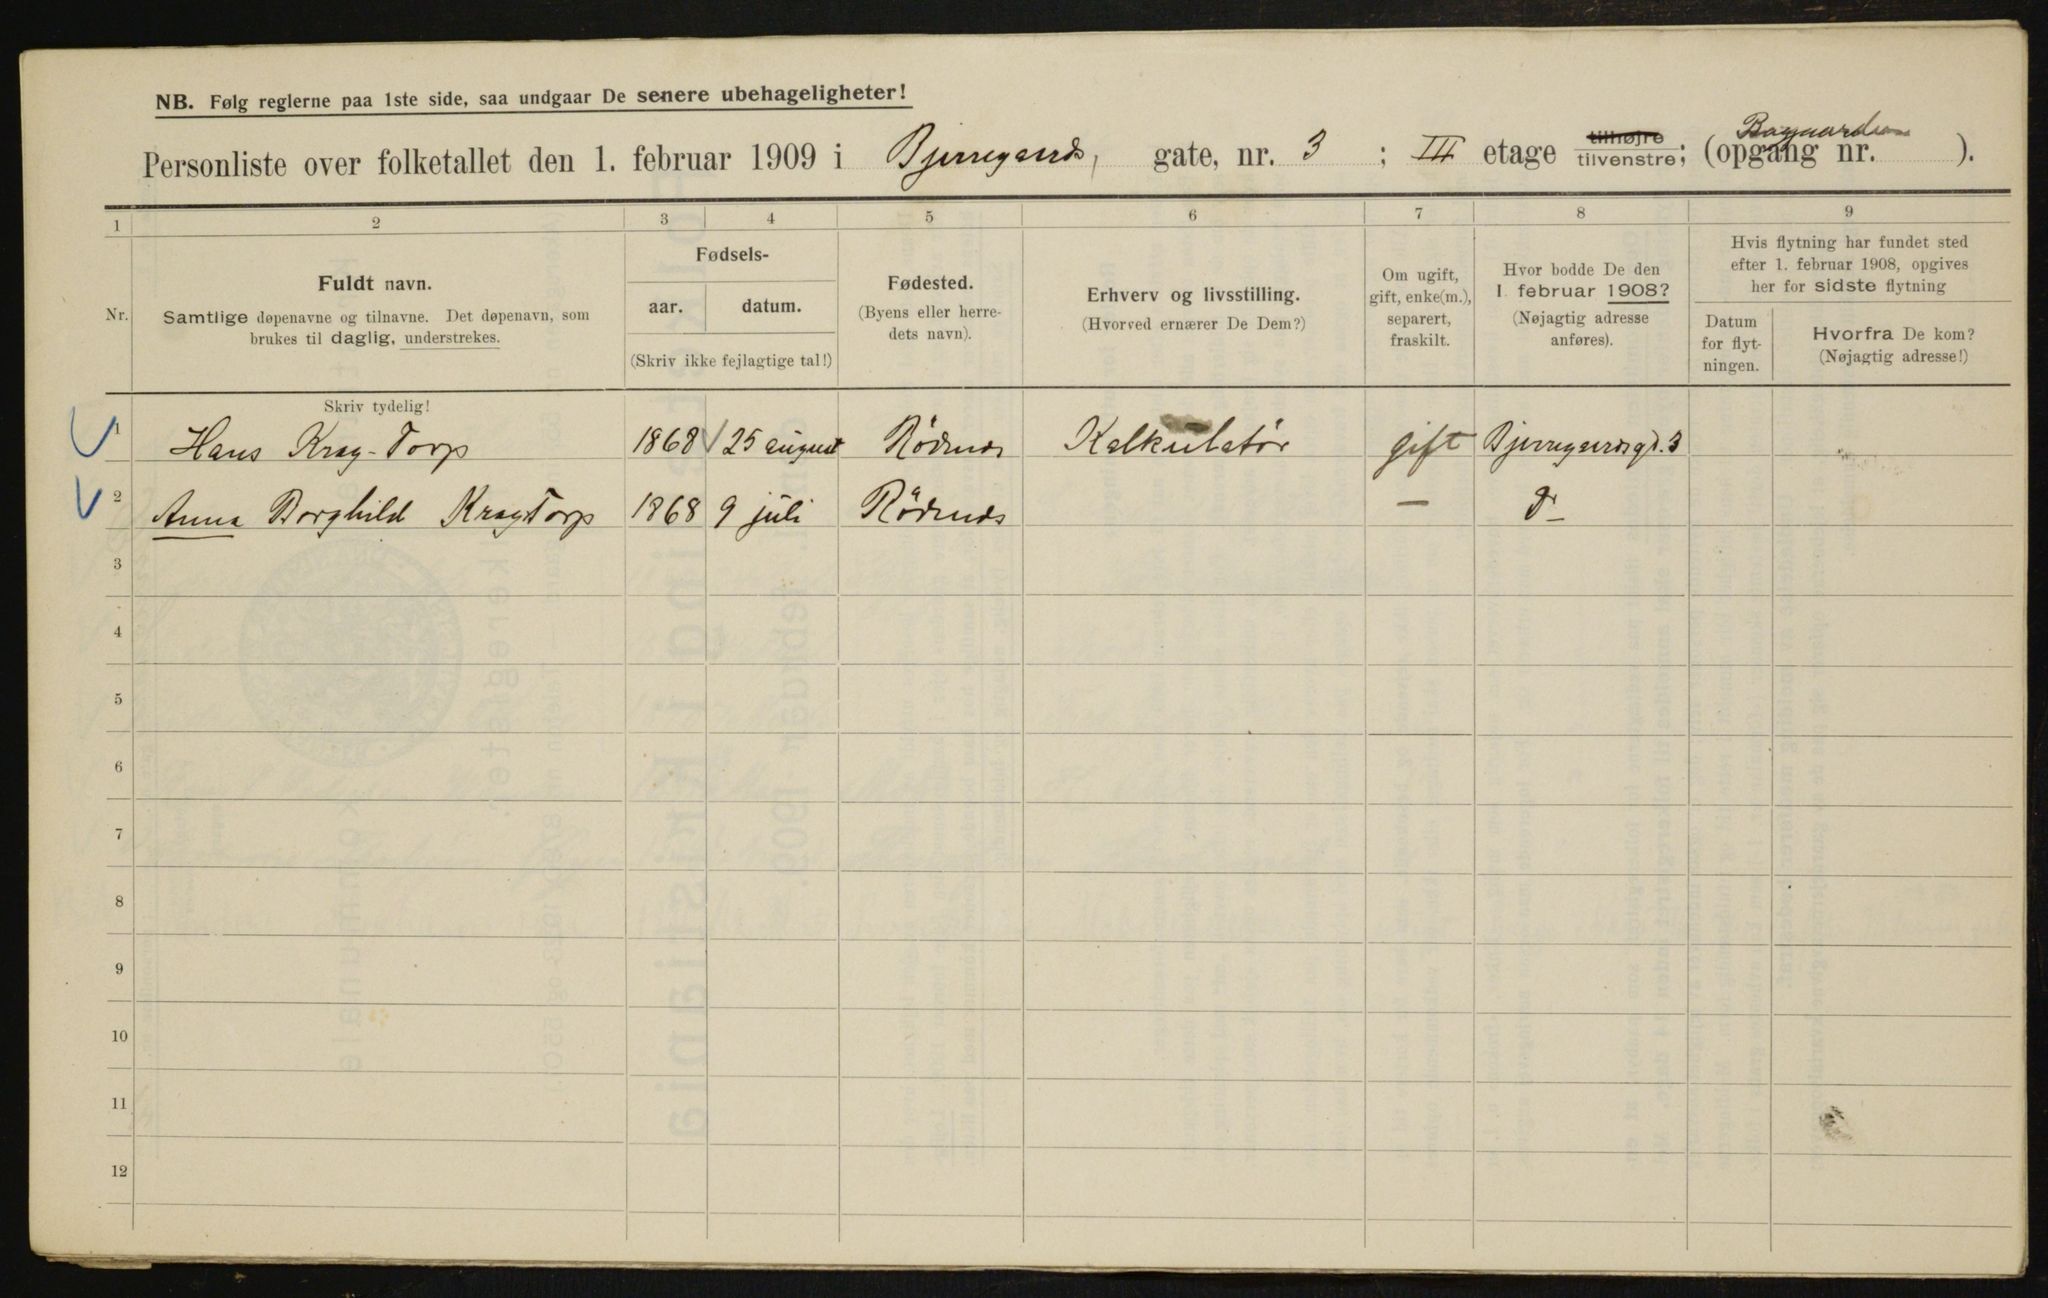 NB. Følg reglerne paa 1ste side, saa undgaar De senere ubehageligheter!
Personliste over folketallet den 1. februar 1909 i Bjerregaards, gate, nr. 3 ; III etage tilhøjre tilvenstre; (opgang nr. Bagaarden ).
1 2 3 4 5 6 7 8 9
Nr.
Fuldt navn.
Samtlige døpenavne og tilnavne. Det døpenavn, som
brukes til daglig, understrekes.
Skriv tydelig!
Fødsels-
aar. datum.
(Skriv ikke fejlagtige tal!)
Fødested.
(Byens eller herre-
dets navn).
Erhverv og livsstilling.
(Hvorved ernærer De Dem?)
Om ugift,
gift, enke(m.),
separert,
fraskilt.
Hvor bodde De den
1. februar 1908?
(Nøjagtig adresse
anføres).
Hvis flytning har fundet sted
efter 1. februar 1908, opgives
her for sidste flytning
Datum
for flyt-
ningen.
Hvorfra De kom?
(Nøjagtig adresse!)
1 Hans Krag-Torp 1868 25 august Rødenes Kalkulatør gift Bjerregaardsgt. 3
2 Anna Borghild Krag Torp 1868 9 juli Rødenes — Do
3
4
5
6
7
8
9
10
11
12